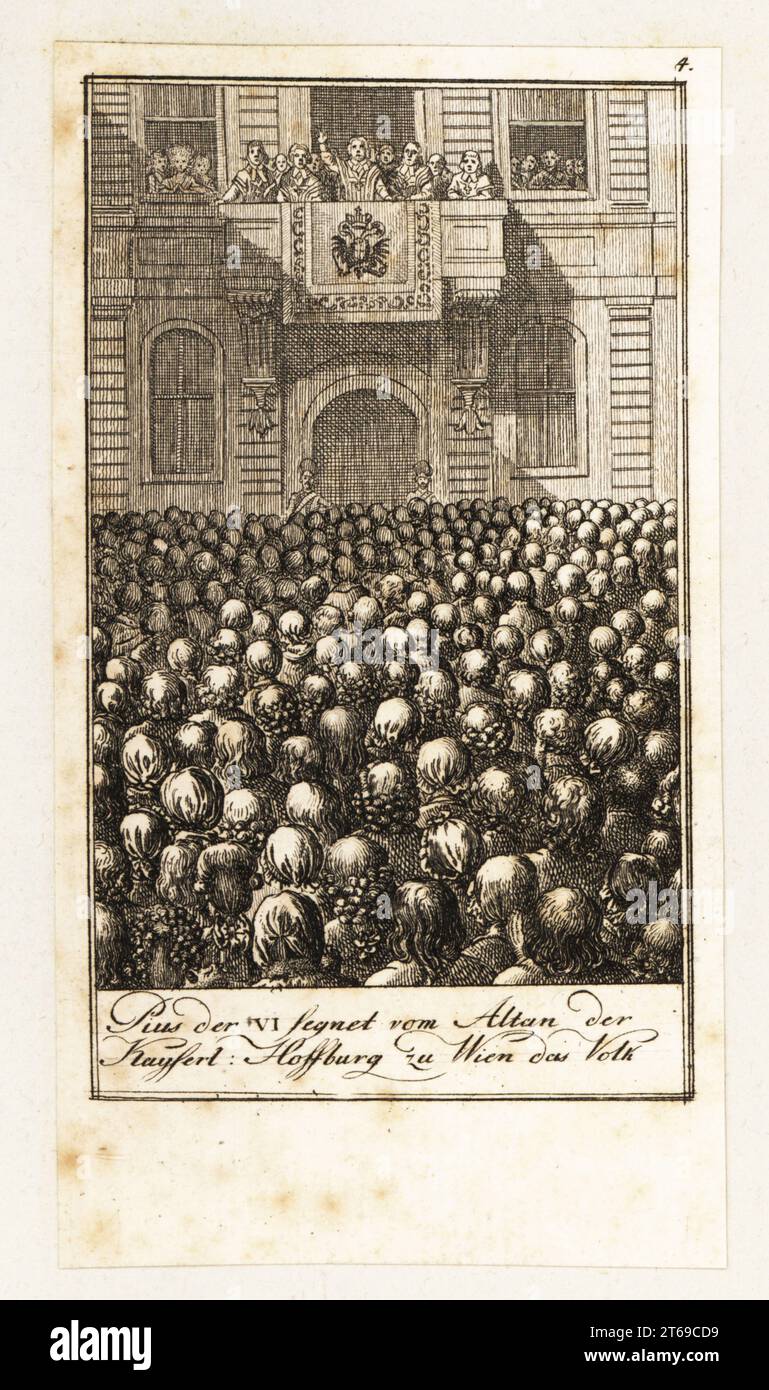 4.
Pius der VI segnet vom Altan der
Kayserl: Hoffburg zu Wien das Volk
alamy
alamy
Image ID: 2T69CD9
www.alamy.com